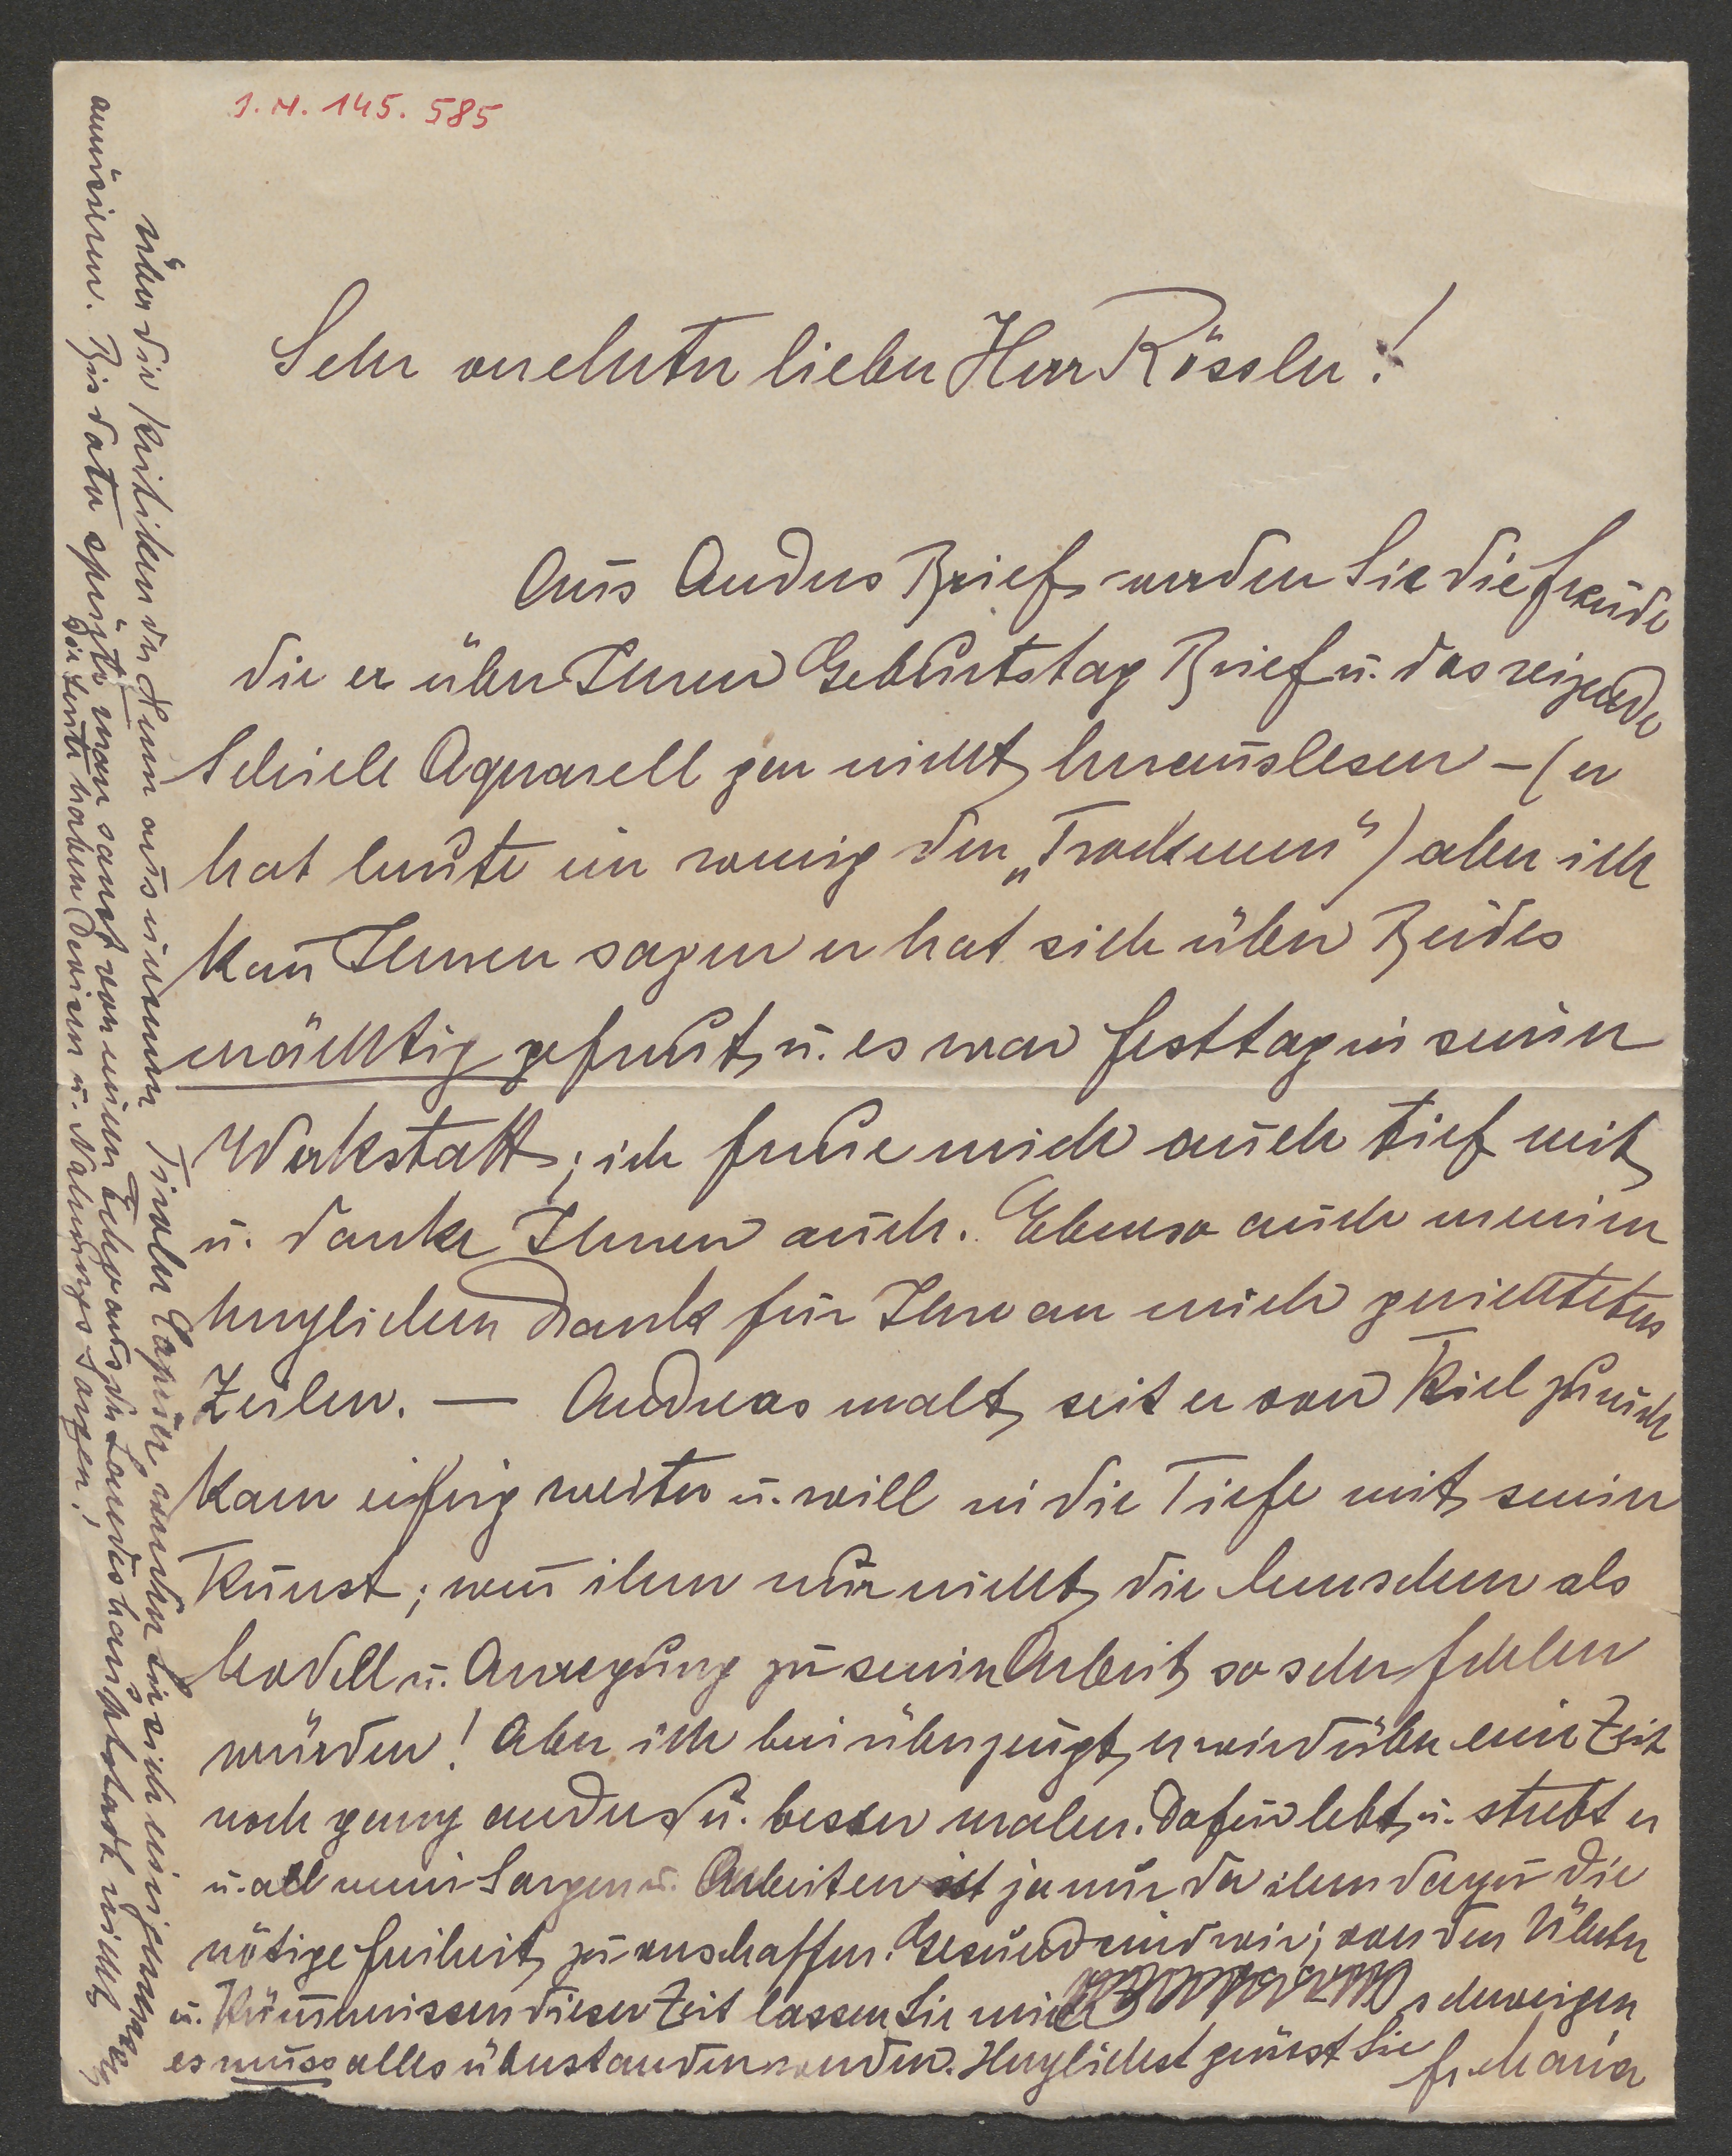 I. N. 145.585
Sehr verehrter lieber Herr Rössler!
Aus Anders Brief werden Sie die Freude
die er über Ihren Geburtstag Brief u. das reizende
Schiele Aquarell gar nicht herauslesen – (er
hat heute ein wenig den „Trockenen") aber ich
kan̄ Ihnen sagen er hat sich über Beides
mächtig gefreut u. es war Festtag in seiner
Werkstatt; ich freue mich auch tief mit
u. danke Ihnen auch. Ebenso auch meinen
herzlichen Dank für Ihre an mich gerichteten
Zeilen. — Andreas malt, seit er von Kiel zurück
kam eifrig weiter u. will in die Tiefe mit seiner
Kunst; wen̄ ihm nur nicht die Menschen als
Modell u. Anregung zu seiner Arbeit so sehr fehlen
würden! Aber ich bin überzeugt, er wird über eine Zeit
noch ganz anders u. besser malen. Dafür lebt u. strebt er
u. all mein Sorgen u. Arbeiten ist ja nur da ihm dazu die
nötige Freiheit zu verschaffen. Gesund sind wir; von den Übeln
u. Küm̄ernissen dieser Zeit lassen Sie mich schweigen
es muss alles überstanden werden. Herzlichst grüsst Sie
Fr. Maria
über die Kritiken der Num̄ aus unserem Tiroler werden Sie sich einigermassen
amüsieren. Bis dato spürte man sonst von einem Echo aus der Landeshauptstadt nichts
die Leute haben Devisen u. Nahrungssorgen;